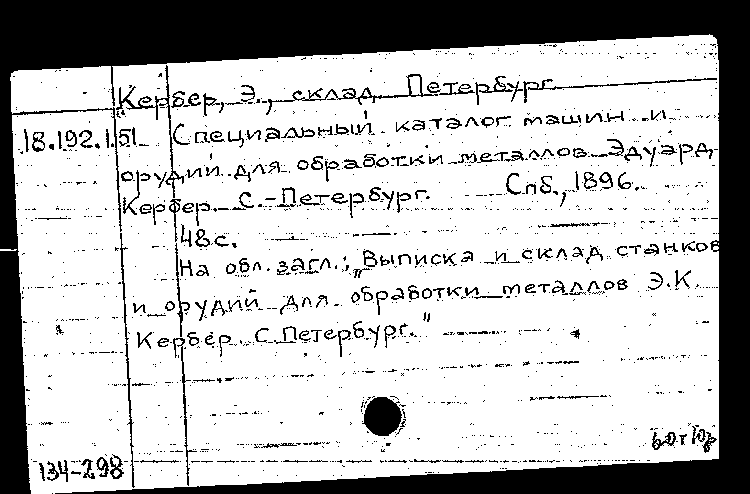 Кербер, Э., склад. Петербург.
18.192.1.51 Специальный каталог машин и
орудий для обработки металлов Эдуард
Кербер. С.-Петербург. Спб., 1896.
48 с.
На обл. загл.: „Выписка и склад станков
и орудий для обработки металлов Э.К.
Кербер. С.Петербург."
134-298